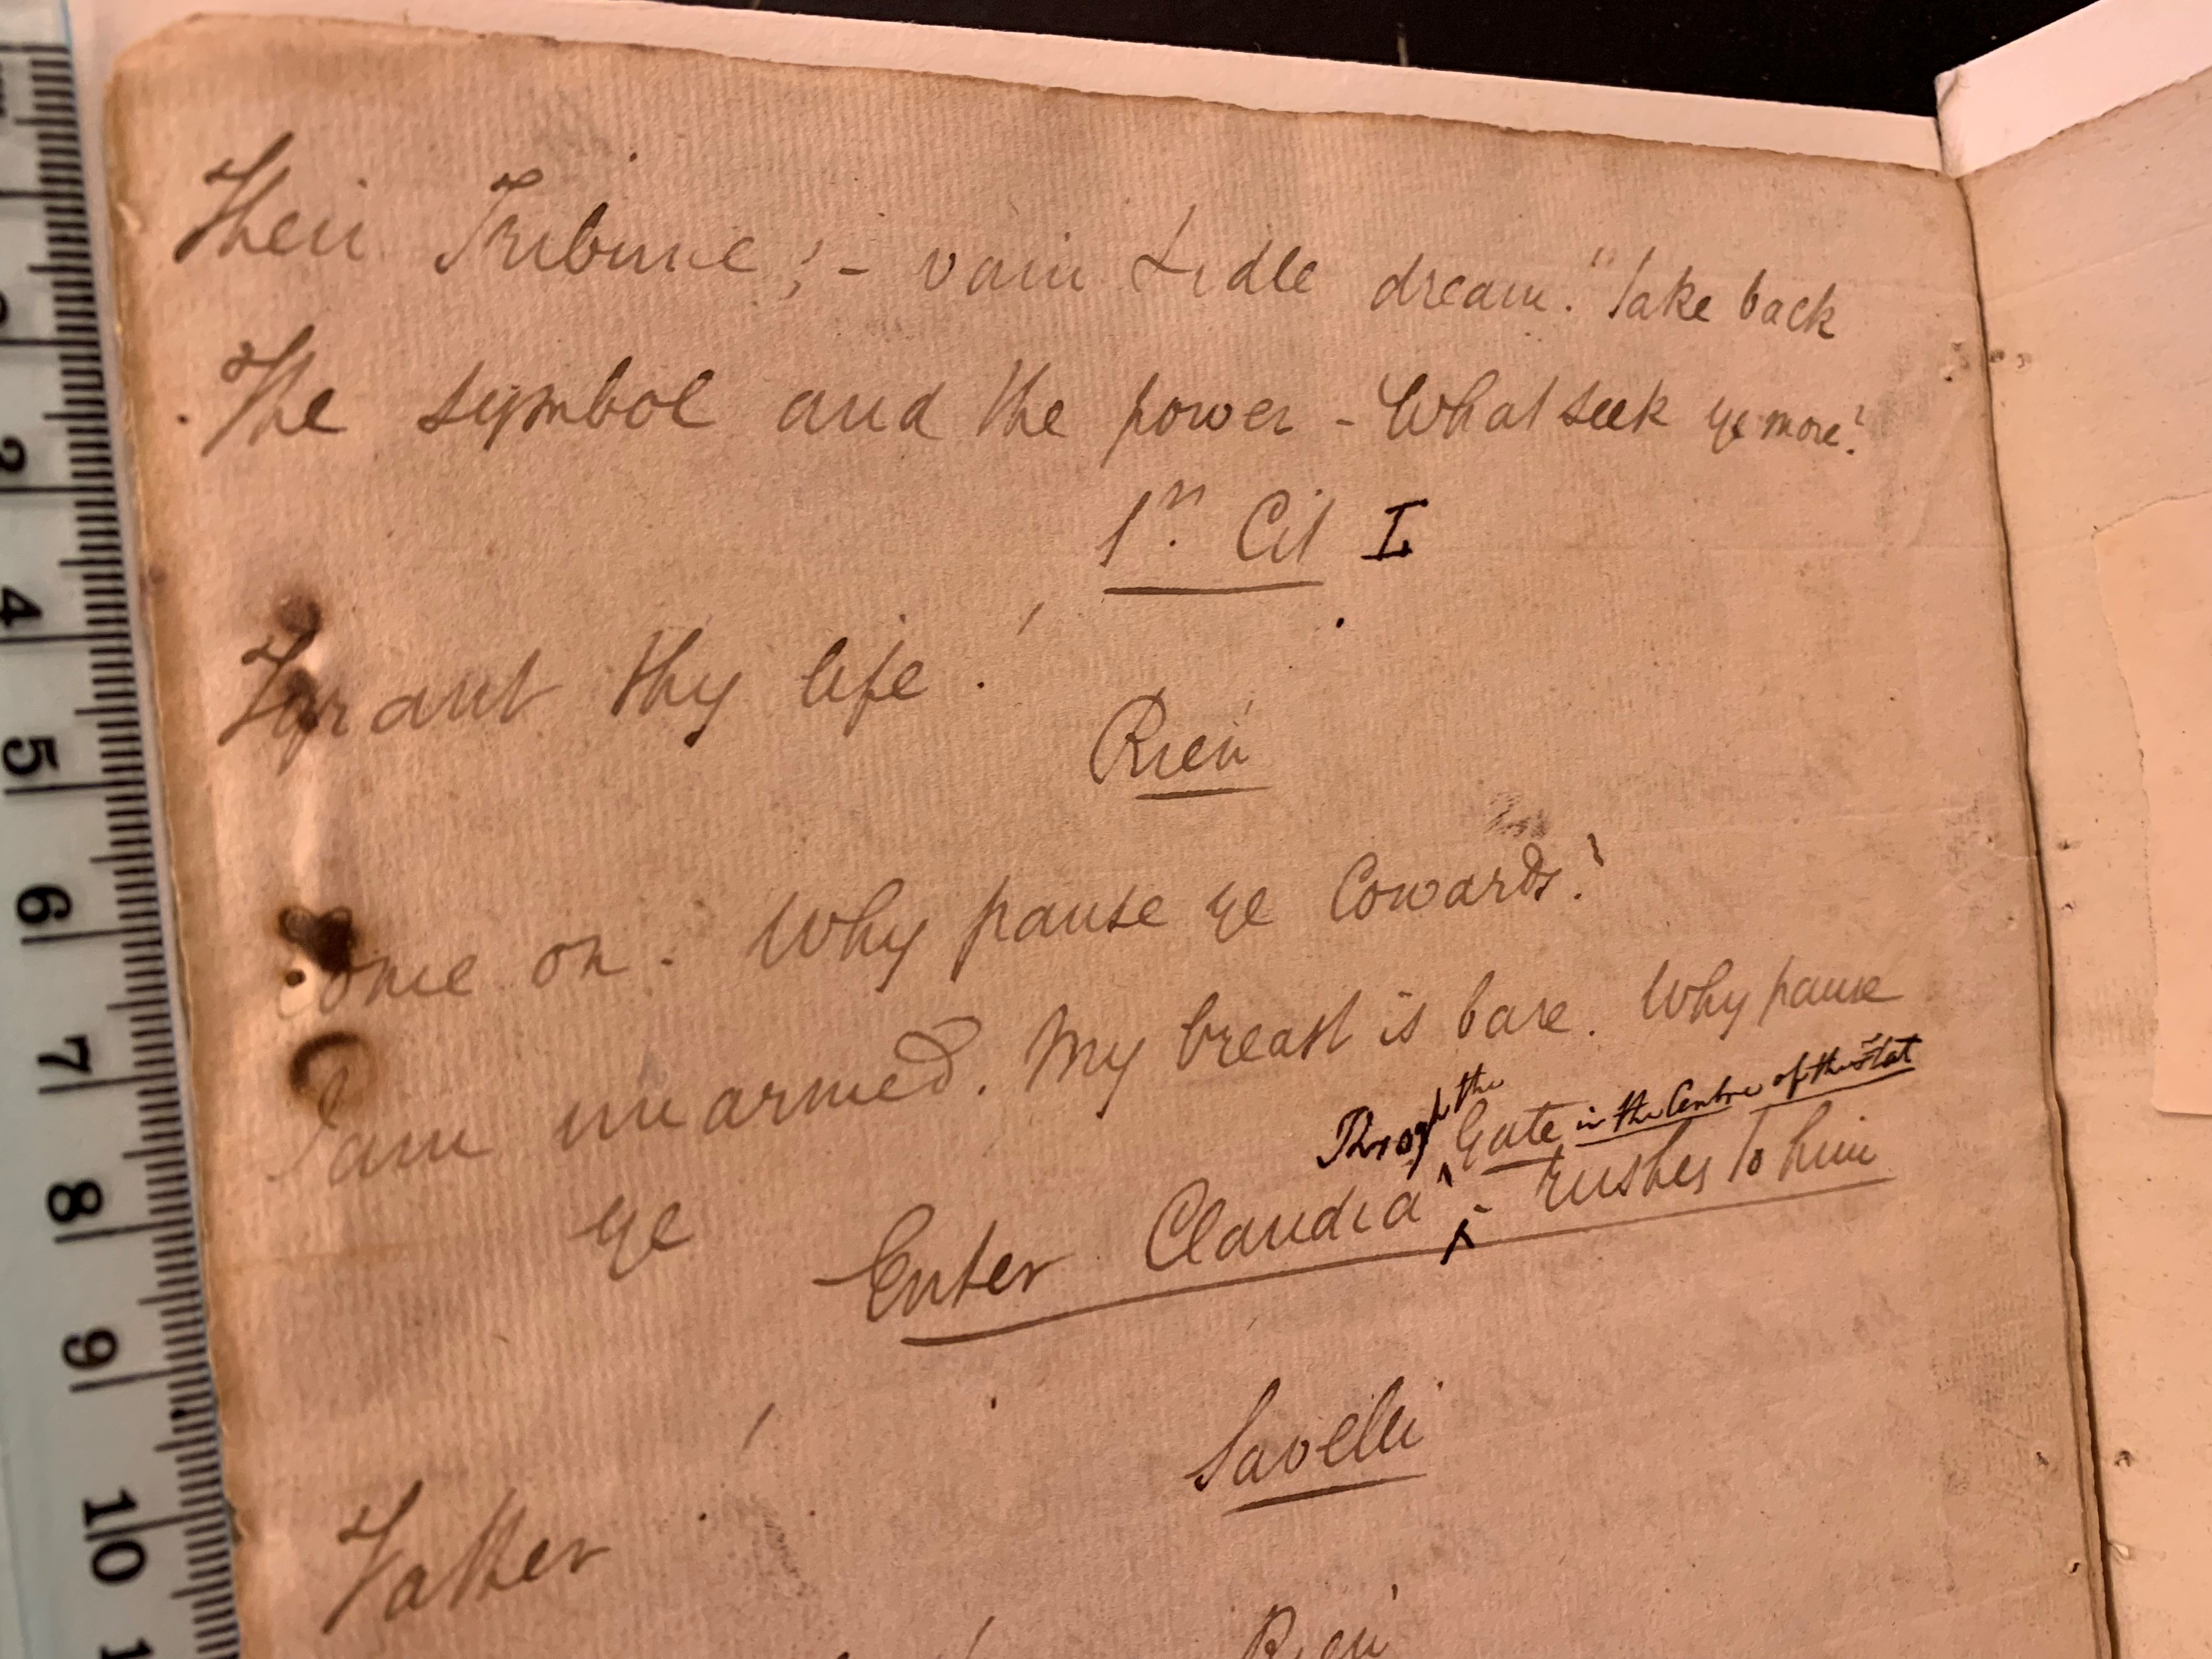 Their Tribune; - vain & idle dream! Take back
The symbol and the power - What seek ye more?
1st Cit I
Tyrant thy life!
Rien
Come on - Why pause ye Cowards?
I am unarmed. My breast is bare. Why pause
ye
Through the Gate in the Centre of the Flat
Enter Claudia - rushes to him
Savelli
Father
Rien